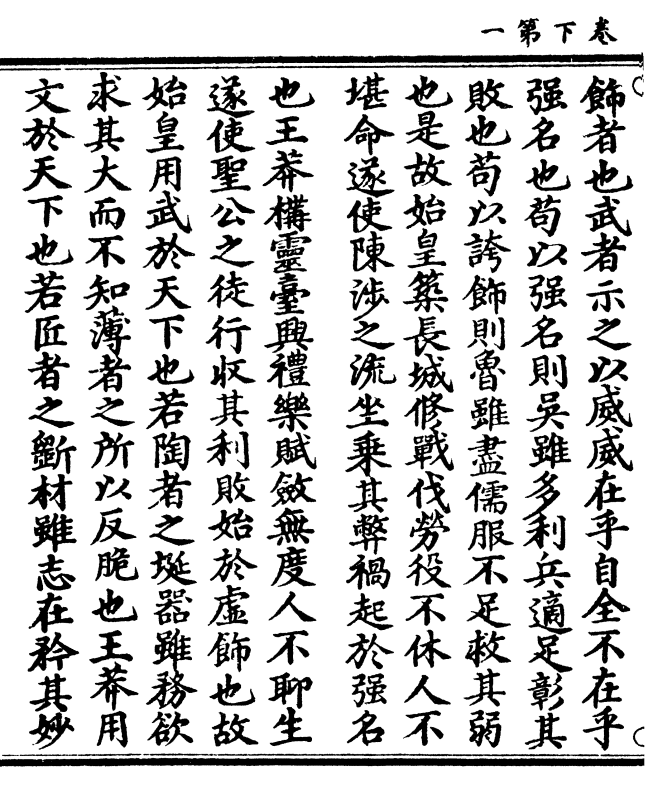 卷下第一
飾者也武者示之以威威在乎自全不在乎
强名也苟以强名則吳雖多利兵適足彰其
敗也苟以誇飾則魯雖盡儒服不足救其弱
也是故始皇築長城修戰伐勞役不休人不
堪命遂使陳涉之流坐乘其弊禍起於强名
也王莽構靈臺興禮樂賦斂無度人不聊生
遂使聖公之徒行收其利敗始於虛飾也故
始皇用武於天下也若陶者之埏器雖務欲
求其大而不知薄者之所以反脆也王莽用
文於天下也若匠者之斵材雖志在矜其妙